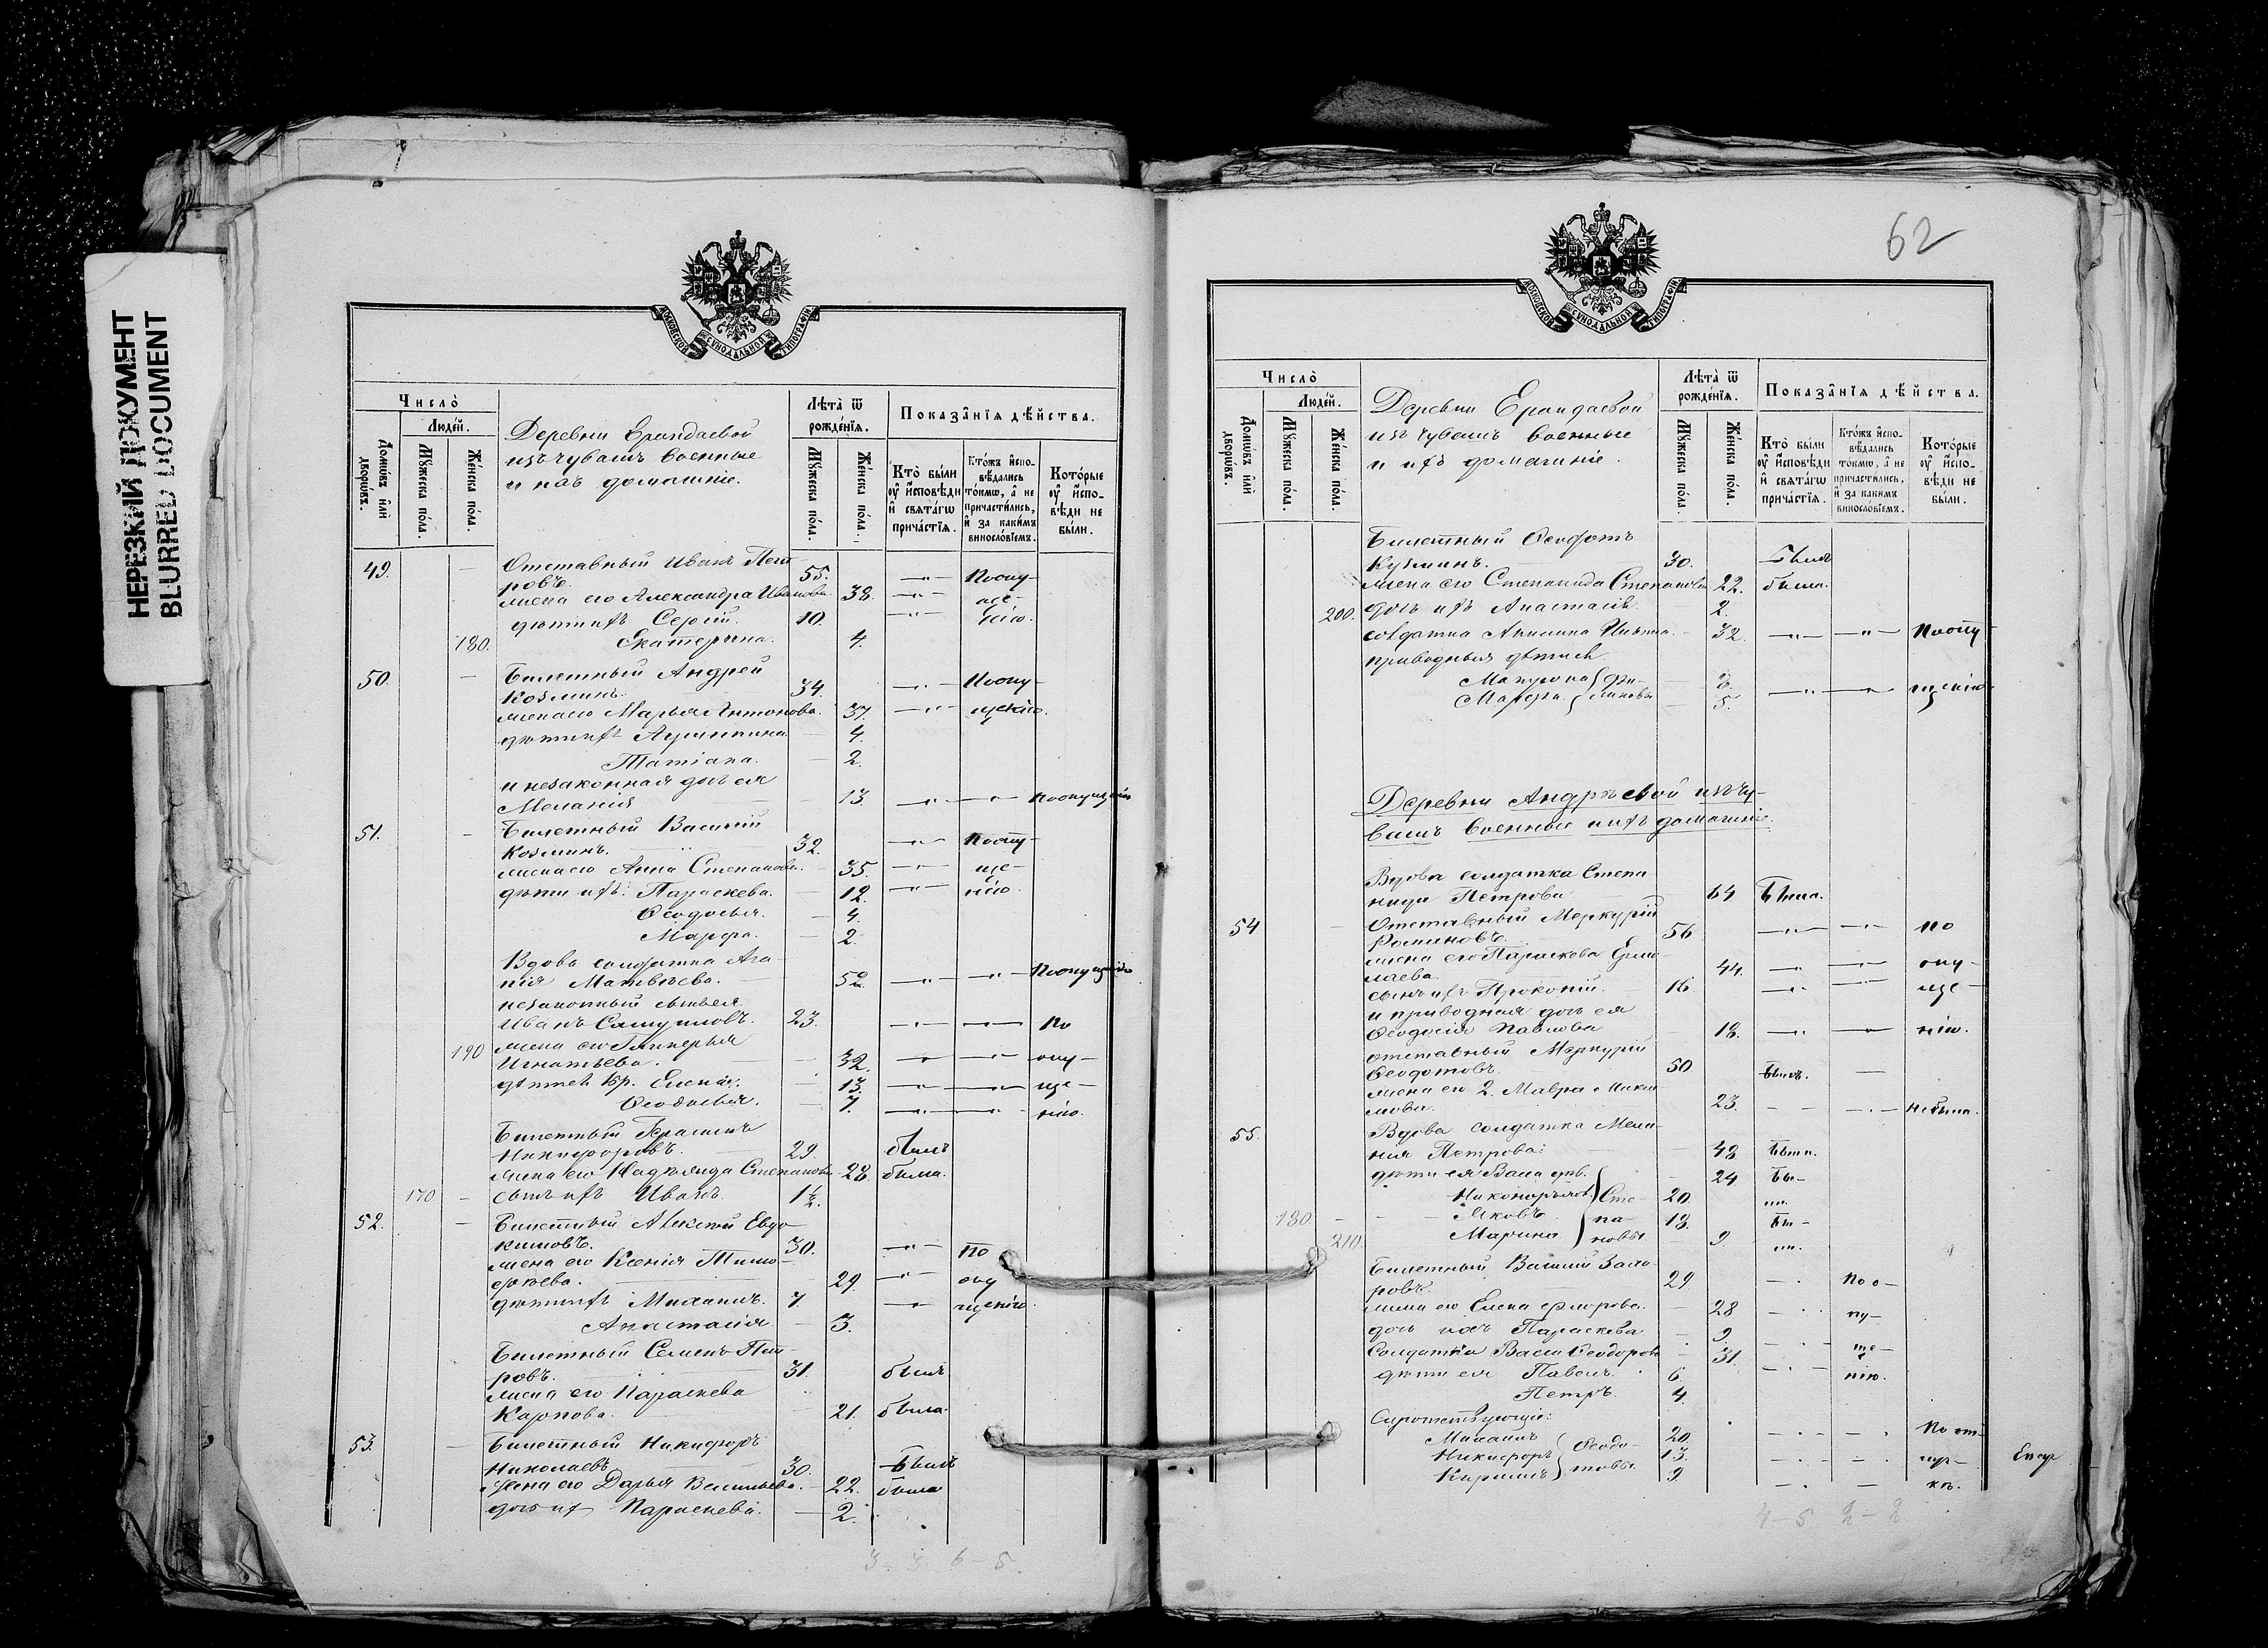 НЕРЕЗКИЙ ДОКУМЕНТ
BLURRED DOCUMENT
МОСКОВСКОЙ СѴНОДАЛЬНОЙ ТИПОГРАФІИ
Число̀
Люде́й.
Домѡ́въ и҆лѝ дворѡ́въ.
Мꙋ́жеска по́ла.
Же́нска по́ла.
Деревни Ерандаевой
изъ чувашъ военные
и ихъ домашніе.
Лѣта̀ ѿ рожде́нїѧ.
Мꙋ́жеска по́ла.
Же́нска по́ла.
Показа̑нїѧ дѣ́йства.
Кто̀ бы́ли ᲂу҆ и҆сповѣ́ди и҆ свѧта́гѡ прича́стїѧ.
Кто́жъ и҆спо-вѣ́дались то́кмѡ, а҆ не причасти́лись, и҆ за каки́мъ винословїемъ.
Кото́рые ᲂу҆ и҆спо-вѣ́ди не бы́ли.
49. Отставный Иванъ Пет
ровъ. 55. —"— По опу-
жена его Александра Иванова. 38. —"— ще-
дѣти ихъ Сергій. 10. —"— нію.
180. Екатерина. 4.
50. Билетный Андрей
Козминъ. 34. —"— По опу-
жена его Марья Антонова. 37. —"— щенію.
дѣти ихъ Агрипина 4.
Татіана. 2.
и незаконная дочь ея
Меланія 13. —"— —"— По опущенію
51. Билетный Василій
Козминъ. 32. —"— По опу-
жена его Анна Степанова. 35. —"— ще-
дѣти ихъ: Параскева. 12. —"— нію.
Ѳеодосья. 4.
Марѳа. 2.
Вдова солдатка Ага
пія Матвѣева. 52. —"— —"— По опущенію
незаконный сынъ ея
Иванъ Самуиловъ. 23. —"— —"— По
190 жена его Гликерья
Игнатьева. 32. —"— —"— опу-
дѣтей Елена. 13. —"— —"— ще-
Ѳеодосья. 7. —"— —"— нію.
Билетный Герасимъ
Никифоровъ. 29. былъ
жена его Надежда Степанова 28. была.
170 сынъ ихъ Иванъ. 1½.
52. Билетный Алексей Евдо
кимовъ. 30. —"— По
жена его Ксенія Тимо-
фѣева. 29. —"— опу
дѣти ихъ Михаилъ. 7. —"— щенію.
Анастасія. 3.
Билетный Семенъ Пет-
ровъ. 31. былъ
жена его Параскева
Карпова. 21. была.
53. Билетный Никифоръ
Николаевъ 30. Былъ
Жена его Дарья Васильева. 22. была
дочь их Параскева. 2.
3 3 6 - 5
62
МОСКОВСКОЙ СѴНОДАЛЬНОЙ ТИПОГРАФІИ
Число̀
Люде́й.
Домѡ́въ и҆лѝ дворѡ́въ.
Мꙋ́жеска по́ла.
Же́нска по́ла.
Деревни Ерандаевой
изъ чувашъ военные
и ихъ домашніе.
Лѣта̀ ѿ рожде́нїѧ.
Мꙋ́жеска по́ла.
Же́нска по́ла.
Показа̑нїѧ дѣ́йства.
Кто̀ бы́ли ᲂу҆ и҆сповѣ́ди и҆ свѧта́гѡ прича́стїѧ.
Кто́жъ и҆спо-вѣ́дались то́кмѡ, а҆ не причасти́лись, и҆ за каки́мъ винословїемъ.
Кото́рые ᲂу҆ и҆спо-вѣ́ди не бы́ли.
Билетный
Кузминъ. 30. Былъ
жена его Степанида Степанова 22. была.
200. дочь ихъ Анастасія 2.
солдатка Акилина 32. —"— —"— По опу-
приводныя дѣти ея
Матрона
Марѳа. 5. —"— —"— щенію
Деревни Андрѣевой изъ чу-
вашъ военные и ихъ домашніе.
Вдова солдатка Степа
нида Петрова 64 Была.
54 Отставный Меркурій
Романовъ. 56 —"— —"— по
жена его Параскева Ермо-
лаева. 44. —"— —"— опу-
сынъ ихъ Прокопій. 16. —"— ще-
и приводная дочь ея
Ѳеодосія Павлова 18. —"— —"— нію.
отставный Меркурій
Ѳеодотовъ. 50 Былъ. —
жена его 2. Мавра Макси
мова. 23. — — —.— не была.
55. Вдова солдатка Мела-
нія Петрова: 48 Была.
дѣти ея 24 Бы-
Сте- 20. ли.
180. Яковъ па- 18. Бы-
210. Марина новы 9. ли.
Билетный Василій Заха
ровъ. 29 —.— По о-
жена его Елена Флорова. 28 —.— пу-
дочь ихъ Параскева 9.
Солдатка Васса Ѳеодорова 31. —.— ще-
дѣти ея Павелъ. 6. —.— нію.
Петръ. 4.
Сиротствующіе:
Михаилъ 20. —.— —.— По от-
Никифоръ Ѳеодо- 13. —.— —.— луч-
Кирилъ товы. 9. —.— — кѣ.
4 - 5 2 - 2